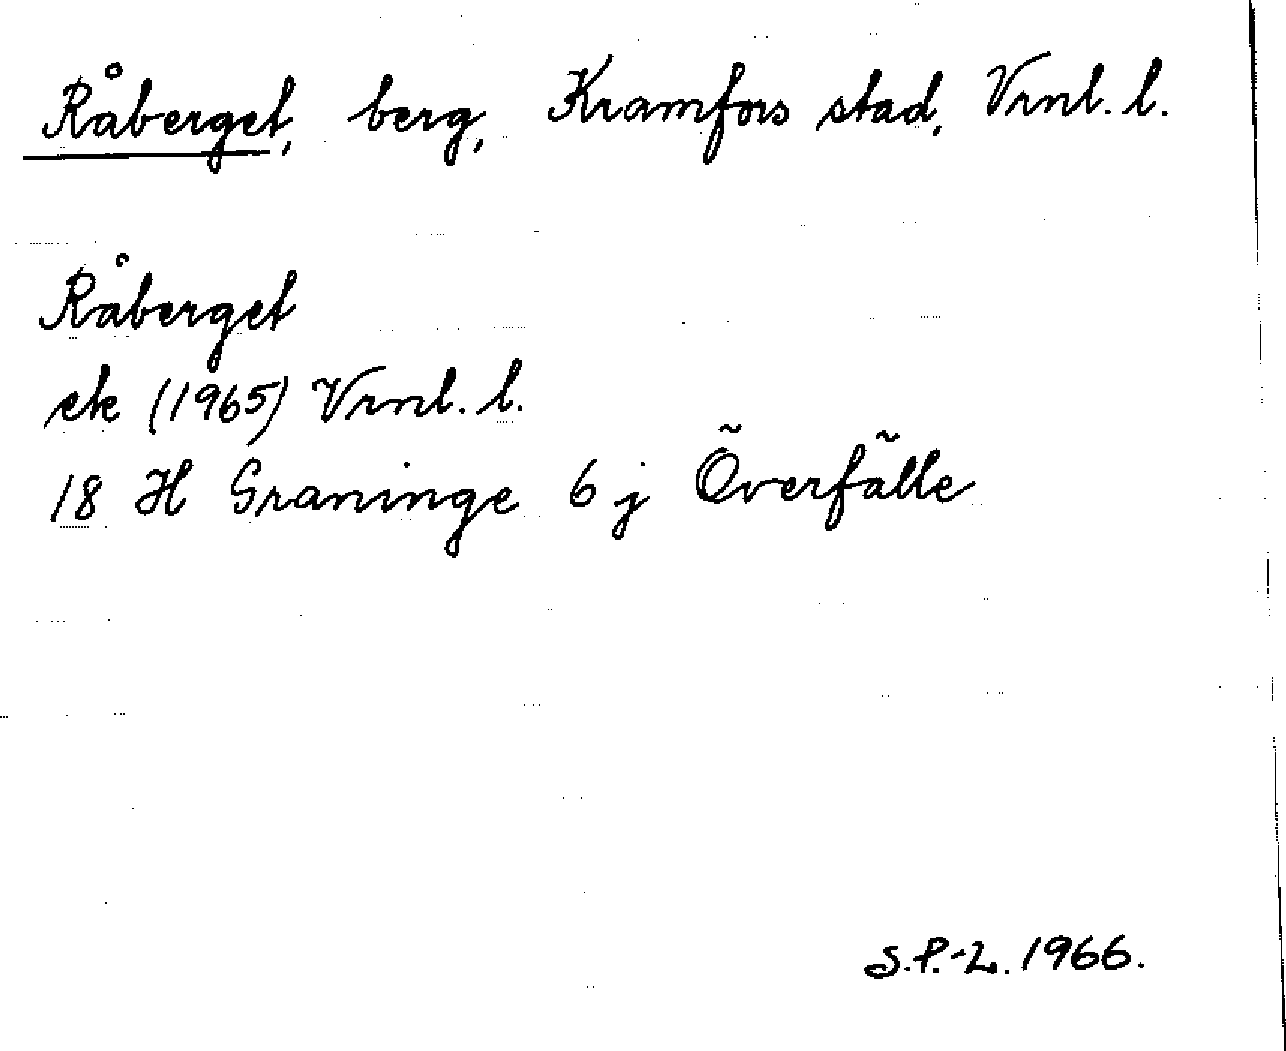 Råberget, berg, Kramfors stad, Vrnl. l.
Råberget
ek (1965) Vrnl. l.
18 H Graninge 6 j Överfälle
S.P.-L. 1966.